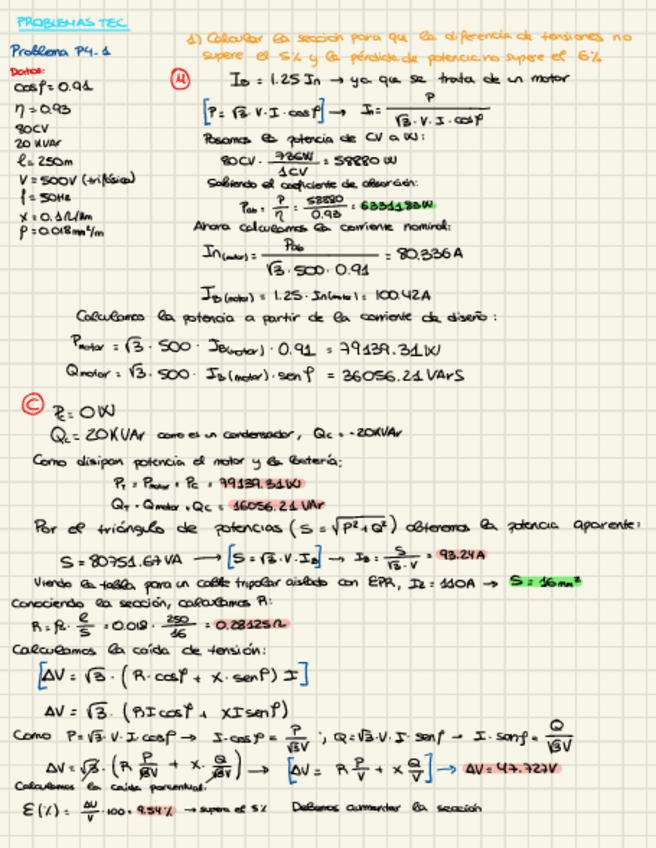 PROBLEMAS TEC
Problema P4.1
1) Calcular la sección para que la diferencia de tensiones no
supere el 5% y la pérdida de potencia no supere el 6%
Datos:
cosφ = 0.91
η = 0.93
80CV
20 KVAr
l = 250m
V = 500V (trifásica)
f = 50Hz
x = 0.1Ω/km
ρ = 0.018mm²/m
M
IB = 1.25 In → ya que se trata de un motor
[P = √3 · V · I · cosφ] → In = P / (√3 · V · I · cosφ)
Pasamos la potencia de CV a W:
80CV · 736W / 1CV = 58880 W
Sabiendo el coeficiente de absorción:
Pab = P / η = 58880 / 0.93 = 63311.83W
Ahora calculamos la corriente nominal:
In(motor) = Pab / (√3 · 500 · 0.91) = 80.336A
IB(motor) = 1.25 · In(motor) = 100.42A
Calculamos la potencia a partir de la corriente de diseño:
Pmotor = √3 · 500 · IB(motor) · 0.91 = 79139.31W
Qmotor = √3 · 500 · IB(motor) · senφ = 36056.21 VArS
C
Pc = 0W
Qc = 20KVAr como es un condensador, Qc = -20KVAr
Como disipan potencia el motor y la batería:
PT = Pmotor + Pc = 79139.31W
QT = Qmotor + Qc = 16056.21 VAr
Por el triángulo de potencias (S = √P² + Q²) obtenemos la potencia aparente:
S = 80751.67VA → [S = √3 · V · IB] → IB = S / (√3 · V) = 93.24A
Viendo la tabla para un cable tripolar aislado con EPR, Iz = 110A → S = 16mm²
Conociendo la sección, calculamos R:
R = ρ · l / S = 0.018 · 250 / 16 = 0.28125Ω
Calculamos la caída de tensión:
[ΔV = √3 · (R · cosφ + X · senφ) I]
ΔV = √3 · (RI cosφ + XI senφ)
Como P = √3 · V · I · cosφ → I · cosφ = P / √3V ; Q = √3 · V · I · senφ → I · senφ = Q / √3V
ΔV = √3 · (R P / √3V + X · Q / √3V) → [ΔV = R P / V + X Q / V] → ΔV = 47.727V
Calculamos la caída porcentual:
Ɛ(%) = ΔV / V · 100 = 9.54% → supera el 5% Debemos aumentar la sección